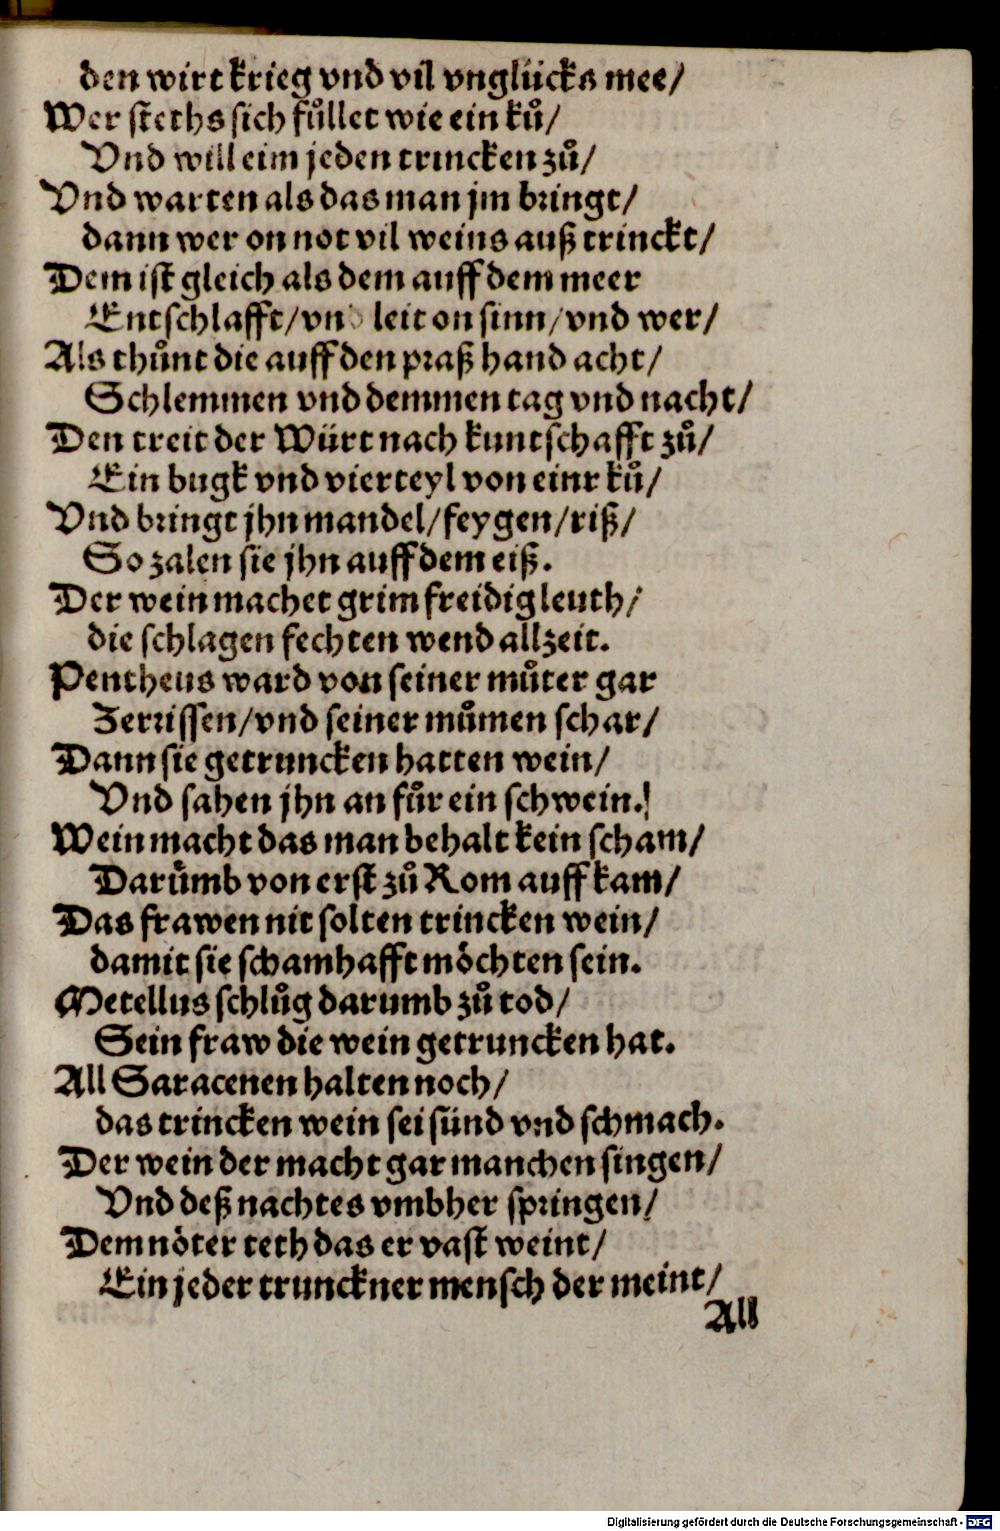 den wirt krieg vnd vil vnglücks mee/
Wer steths sich fůllet wie ein ků/
Vnd will eim jeden trincken zů/
Vnd warten als das man jm bringt/
dann wer on not vil weins auß trinckt/
Dem ist gleich als dem auff dem meer
Entschlafft/vn leit on sinn/vnd wer/
Als thůnt die auff den praß hand acht/
Schlemmen vnd demmen tag vnd nacht/
Den treit der Würt nach kuntschafft zů/
Ein bugk vnd vierteyl von einr ků/
Vnd bringt jhn mandel/feygen/riß/
So zalen sie jhn auff dem eiß.
Der wein machet grim freidig leuth/
die schlagen fechten wend allzeit.
Pentheus ward von seiner můter gar
Zerrissen/vnd seiner můmen schar/
Dann sie getruncken hatten wein/
Vnd sahen jhn an für ein schwein.
Wein macht das man behalt kein scham/
Darůmb von erst zů Rom auff kam/
Das frawen nit solten trincken wein/
damit sie schamhafft möchten sein.
Metellus schlůg darumb zů tod/
Sein fraw die wein getruncken hat.
All Saracenen halten noch/
das trincken wein sei sünd vnd schmach.
Der wein der macht gar manchen singen/
Vnd deß nachtes vmbher springen/
Dem nöter teth das er vast weint/
Ein jeder trunckner mensch der meint/
All
Digitalisierung gefördert durch die Deutsche Forschungsgemeinschaft - DFG